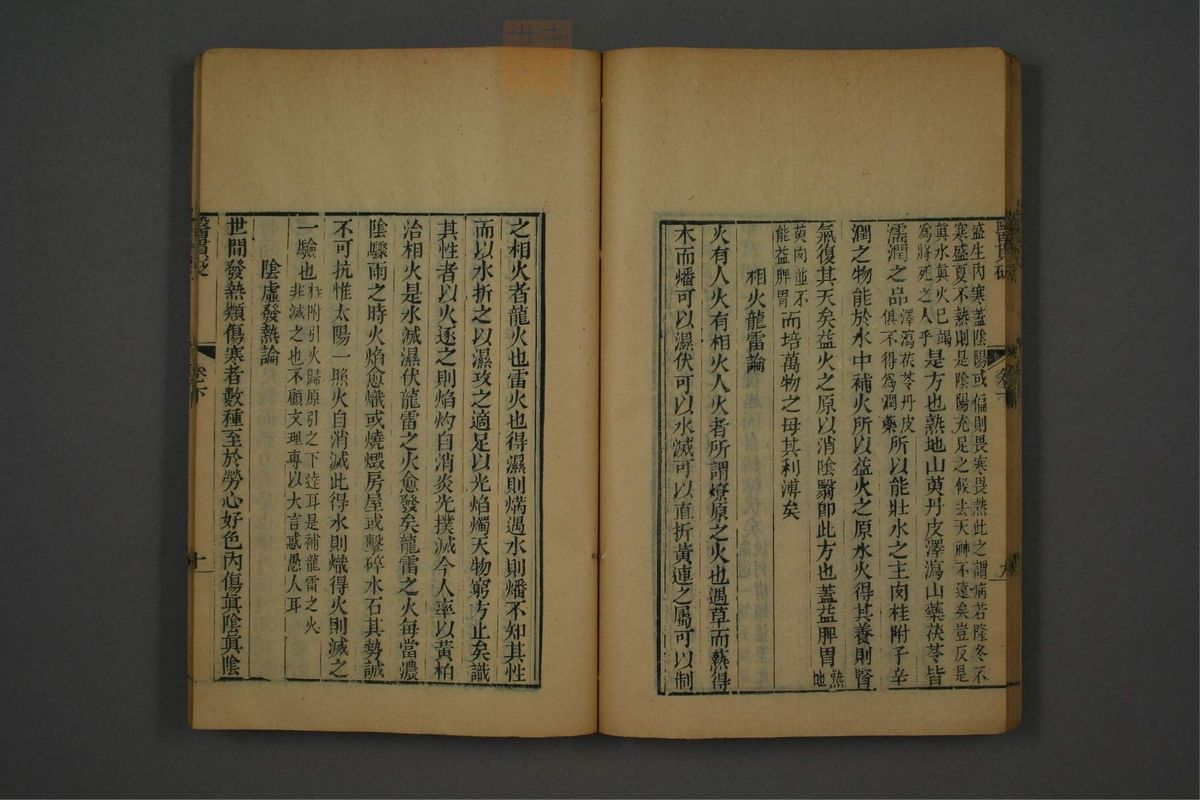 盛生內寒蓋陰陽或偏則畏寒畏熱此之謂病若隆冬不
寒盛夏不熱則是陰陽充足之候去天神不遠矣豈反是
真水真火已竭
為將死之人乎是方也熟地山萸丹皮澤瀉山藥茯苓皆
濡潤之品澤瀉茯苓丹皮俱不得為潤藥所以能壯水之主肉桂附子辛
潤之物能於水中補火所以益火之原水火得其養則腎
氣復其天矣益火之原以消陰翳卽此方也蓋益脾胃熟地
萸肉並不能益脾胃而培萬物之母其利溥矣
相火龍雷論
火有人火有相火人火者所謂燎原之火也遇草而爇得
木而燔可以濕伏可以水滅可以直折黃連之屬可以制
之相火者龍火也雷火也得濕則焫遇水則燔不知其性
而以水折之以濕攻之適足以光焰燭天物窮方止矣識
其性者以火逐之則焰灼自消炎光撲滅今人率以黃柏
治相火是水滅濕伏龍雷之火愈發矣龍雷之火每當濃
陰驟雨之時火焰愈熾或燒燬房屋或擊碎水石其勢誠
不可抗惟太陽一照火自消滅此得水則熾得火則滅之
一驗也桂附引火歸原引之下達耳是補龍雷之火非滅之也不顧文理專以大言惑愚人耳
陰虛發熱論
世間發熱類傷寒者數種至於勞心好色內傷眞陰眞陰
卷下
十